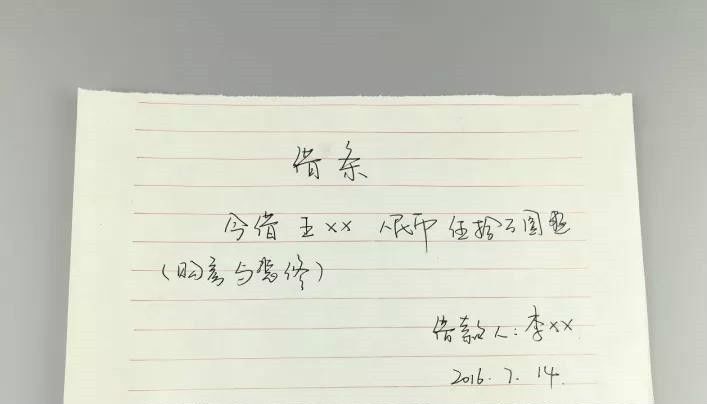 借条
今借王xx 人民币伍拾万圆整
(购房与装修)
借款人:李xx
2016.7.14.